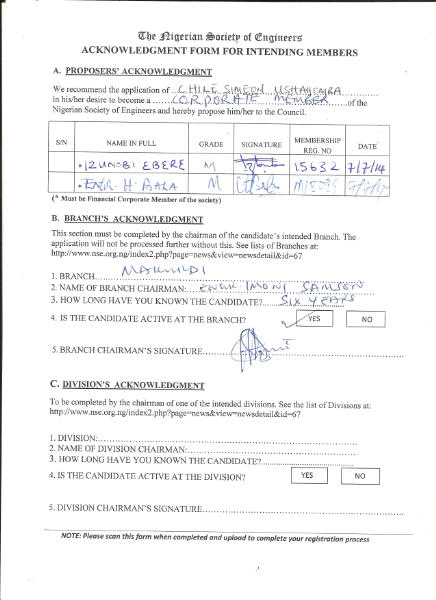 The Nigerian Society of Engineers
ACKNOWLEDGMENT FORM FOR INTENDING MEMBERS
A. PROPOSERS' ACKNOWLEDGMENT
We recommend the application of CHILE SIMEON
in his/her desire to become a CORPORATE MEMBER of the
Nigerian Society of Engineers and hereby propose him/her to the Council.
S/N NAME IN FULL GRADE SIGNATURE MEMBERSHIP REG. NO DATE
* IZUNOBI EBERE M 15632 7/7/14
* ENGR. H. BALA M
(* Must be Financial Corporate Member of the society)
B. BRANCH'S ACKNOWLEDGMENT
This section must be completed by the chairman of the candidate's intended Branch. The
application will not be processed further without this. See lists of Branches at:
http://www.nse.org.ng/index2.php?page=news&view=newsdetail&id=67
1. BRANCH MAKURDI
2. NAME OF BRANCH CHAIRMAN: ENGR IMONI SAMSON
3. HOW LONG HAVE YOU KNOWN THE CANDIDATE? SIX YEARS
4. IS THE CANDIDATE ACTIVE AT THE BRANCH? YES NO
5. BRANCH CHAIRMAN'S SIGNATURE
C. DIVISION'S ACKNOWLEDGMENT
To be completed by the chairman of one of the intended divisions. See the list of Divisions at:
http://www.nse.org.ng/index2.php?page=news&view=newsdetail&id=67
1. DIVISION:
2. NAME OF DIVISION CHAIRMAN:
3. HOW LONG HAVE YOU KNOWN THE CANDIDATE?
4. IS THE CANDIDATE ACTIVE AT THE DIVISION? YES NO
5. DIVISION CHAIRMAN'S SIGNATURE
NOTE: Please scan this form when completed and upload to complete your registration process